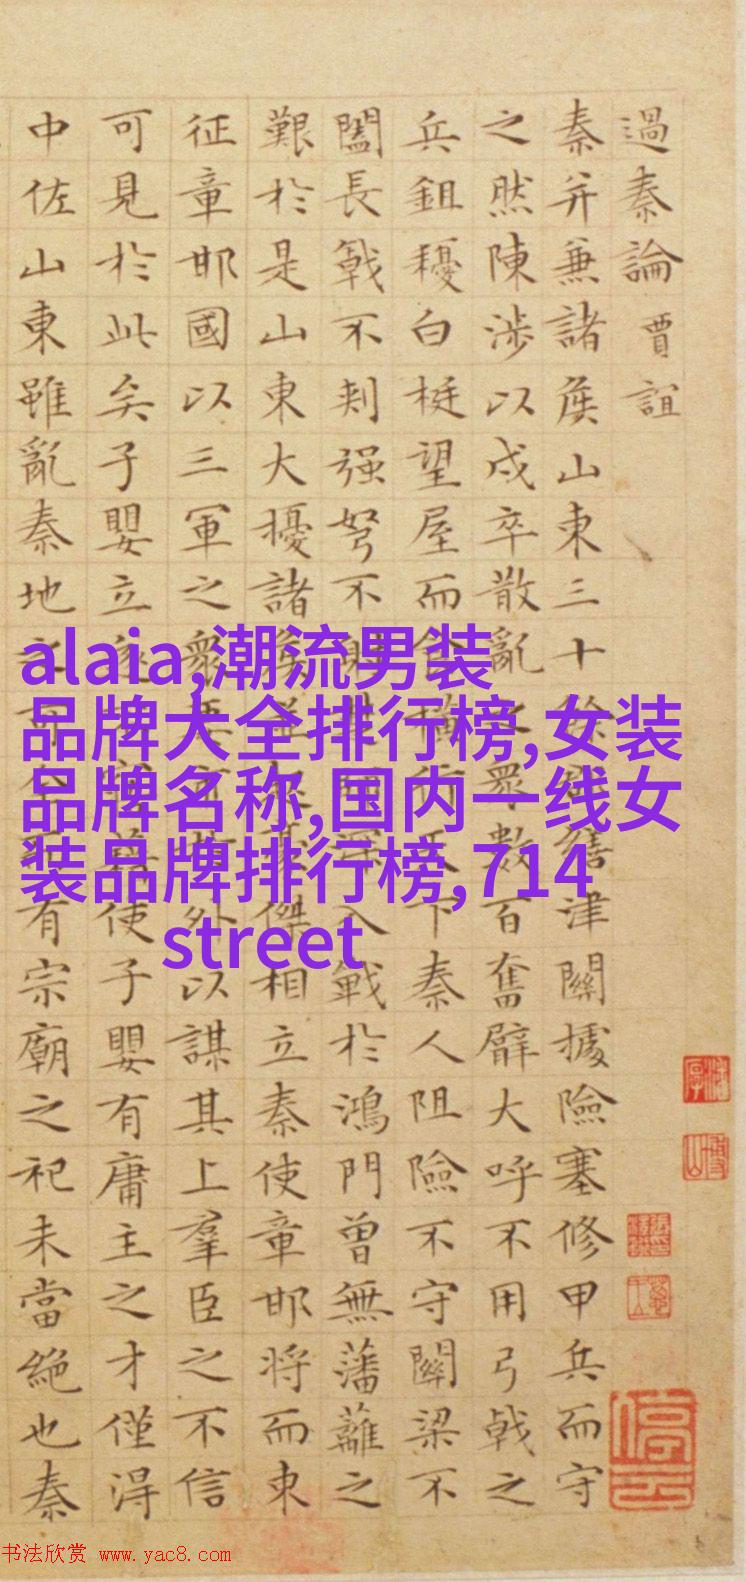 過秦論 賈誼
秦并兼諸侯山東三十繕津關據險塞修甲兵而守
之然陳涉以戍卒散亂之眾數百奮臂大呼不用弓戟之
兵鉏耰白梃望屋而食橫行天下秦人阻險不守關梁不
闔長戟不刺强弩不射深入戰於鴻門曾無藩籬之
艱於是山東大擾諸侯並起豪傑相立秦使章邯將而東
征章邯國以三軍之眾要市於外以謀其上羣臣之不信
可見於此矣子嬰立遂使子嬰有庸主之才僅得
中佐山東雖亂秦地之有宗廟之祀未當絕也秦
alaia,潮流男装
品牌大全排行榜,女装
品牌名称,国内一线女
装品牌排行榜,714
street
停云
书法欣赏 www.yac8.com